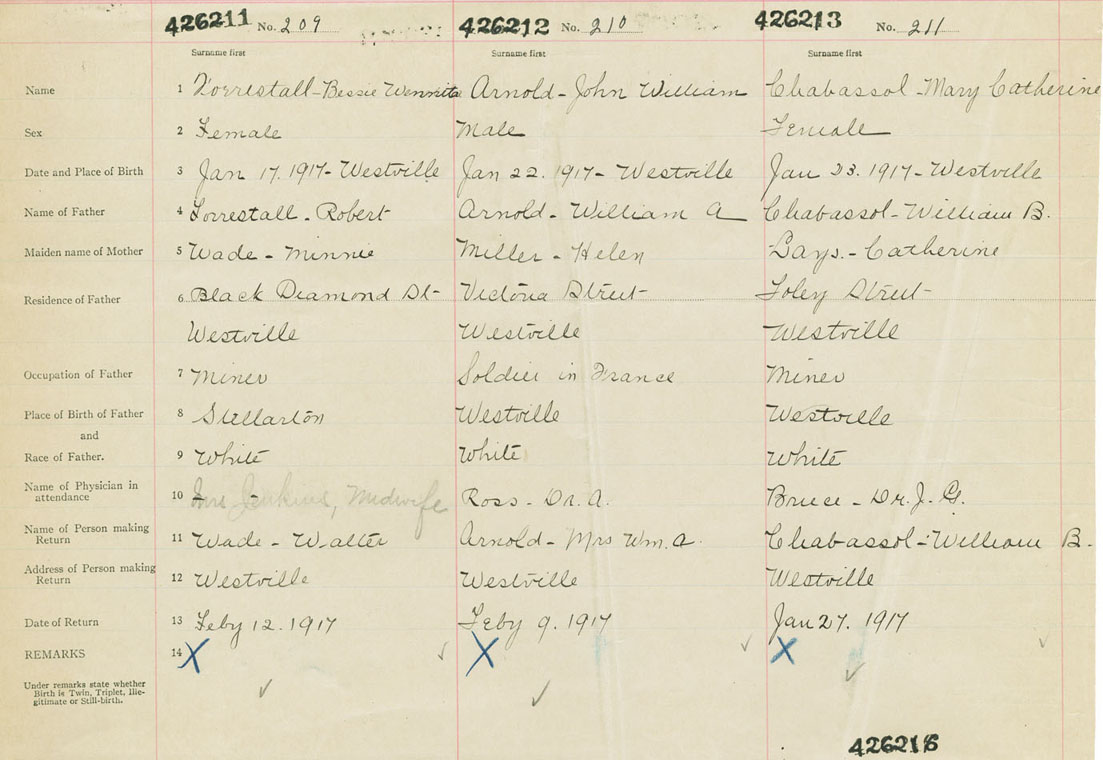 426211 No. 209 426212 No. 210 426213 No. 211
Surname first Surname first Surname first
Name 1 Forrestall-Bessie Arnold-John William Chabassol-Mary Catherine
Sex 2 Female Male Female
Date and Place of Birth 3 Jan 17. 1917- Westville Jan 22. 1917- Westville Jan 23. 1917-Westville
Name of Father 4 Forrestall-Robert Arnold-William A Chabassol-William B.
Maiden name of Mother 5 Wade-Minnie Miller-Helen Catherine
Residence of Father 6 Black Diamond St- Victoria Street Foley Street
Westville Westville Westville
Occupation of Father 7 Miner Soldier in France Miner
Place of Birth of Father 8 Stellarton Westville Westville
and
Race of Father. 9 White White White
Name of Physician in
attendance 10 Mrs Jenkins, Midwife Ross-Dr. A. Bruce-Dr. J. G.
Name of Person making
Return 11 Wade-Walter Arnold-Mrs Wm. A. Chabassol-William B.
Address of Person making
Return 12 Westville Westville Westville
Date of Return 13 Feby 12. 1917 Feby 9. 1917 Jan 27. 1917
REMARKS 14 X X X
Under remarks state whether
Birth is Twin, Triplet, Ille-
gitimate or Still-birth.